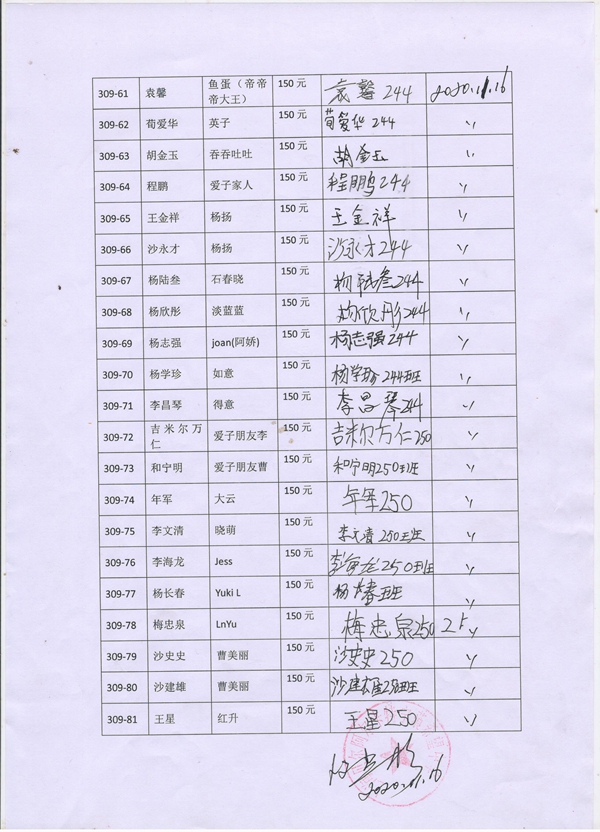 309-61 袁馨 鱼蛋（帝帝帝大王） 150 元 袁馨 244 2020.11.16
309-62 荀爱华 英子 150 元 荀爱华 244 〃
309-63 胡金玉 吞吞吐吐 150 元 胡金玉 〃
309-64 程鹏 爱子家人 150 元 程鹏 244 〃
309-65 王金祥 杨扬 150 元 王金祥 〃
309-66 沙永才 杨扬 150 元 沙永才 244 〃
309-67 杨陆叁 石春晓 150 元 杨陆叁 244 〃
309-68 杨欣彤 淡蓝蓝 150 元 杨欣彤 244 〃
309-69 杨志强 joan(阿娇) 150 元 杨志强 244 〃
309-70 杨学珍 如意 150 元 杨学珍 244班 〃
309-71 李昌琴 得意 150 元 李昌琴 244 〃
309-72 吉米尔万仁 爱子朋友李 150 元 吉米尔万仁 250 〃
309-73 和宁明 爱子朋友曹 150 元 和宁明 250班 〃
309-74 年军 大云 150 元 年军 250 〃
309-75 李文清 晓萌 150 元 李文清 250班 〃
309-76 李海龙 Jess 150 元 李海龙 250班 〃
309-77 杨长春 Yuki L 150 元 杨长春 班 〃
309-78 梅忠泉 LnYu 150 元 梅忠泉 250 〃
309-79 沙史史 曹美丽 150 元 沙史史 250 〃
309-80 沙建雄 曹美丽 150 元 沙建雄 250班 〃
309-81 王星 红升 150 元 王星 250 〃
2020.11.16